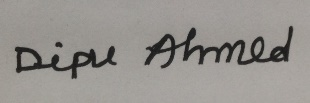 Dipu Ahmed